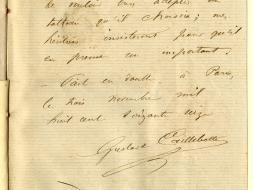 de mieux
tation qu'il choisira ; mes
héritiers insisteront pour qu'il
en prenne un important.
Fait en double à Paris,
le trois novembre mil
huit cent soixante seize
Gustave Caillebotte